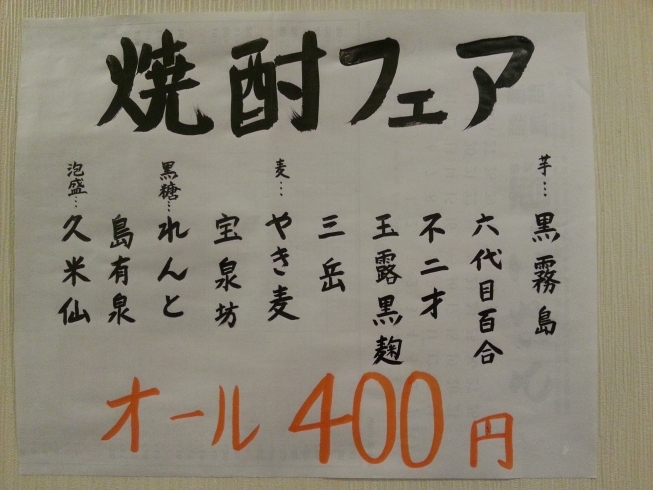 焼酎フェア
芋…黒霧島
六代目百合
不二才
玉露黒麹
三岳
麦…やき麦
宝泉坊
黒糖…れんと
島有泉
泡盛…久米仙
オール400円